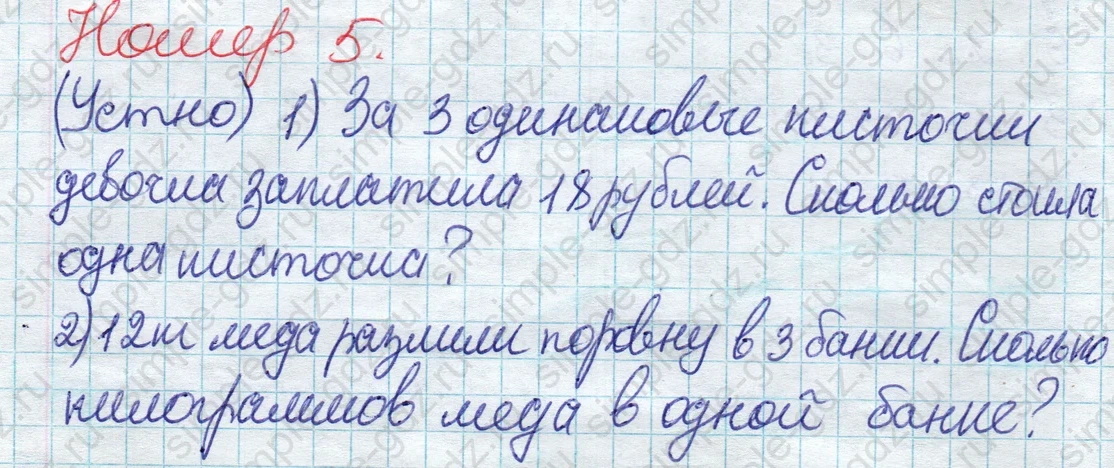 Номер 5.
(Устно) 1) За 3 одинаковые кисточки
девочка заплатила 18 рублей. Сколько стоила
одна кисточка?
2) 12кг меда разлили поровну в 3 банки. Сколько
килограммов меда в одной банке?
simple-gdz.ru